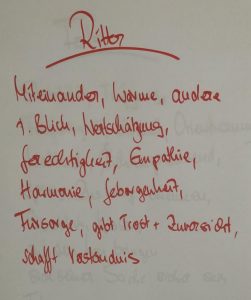 Ritter
Miteinander, Wärme, andere
1. Blick, Wertschätzung,
Gerechtigkeit, Empathie,
Harmonie, Geborgenheit,
Fürsorge, gibt Trost + Zuversicht,
schafft Verständnis